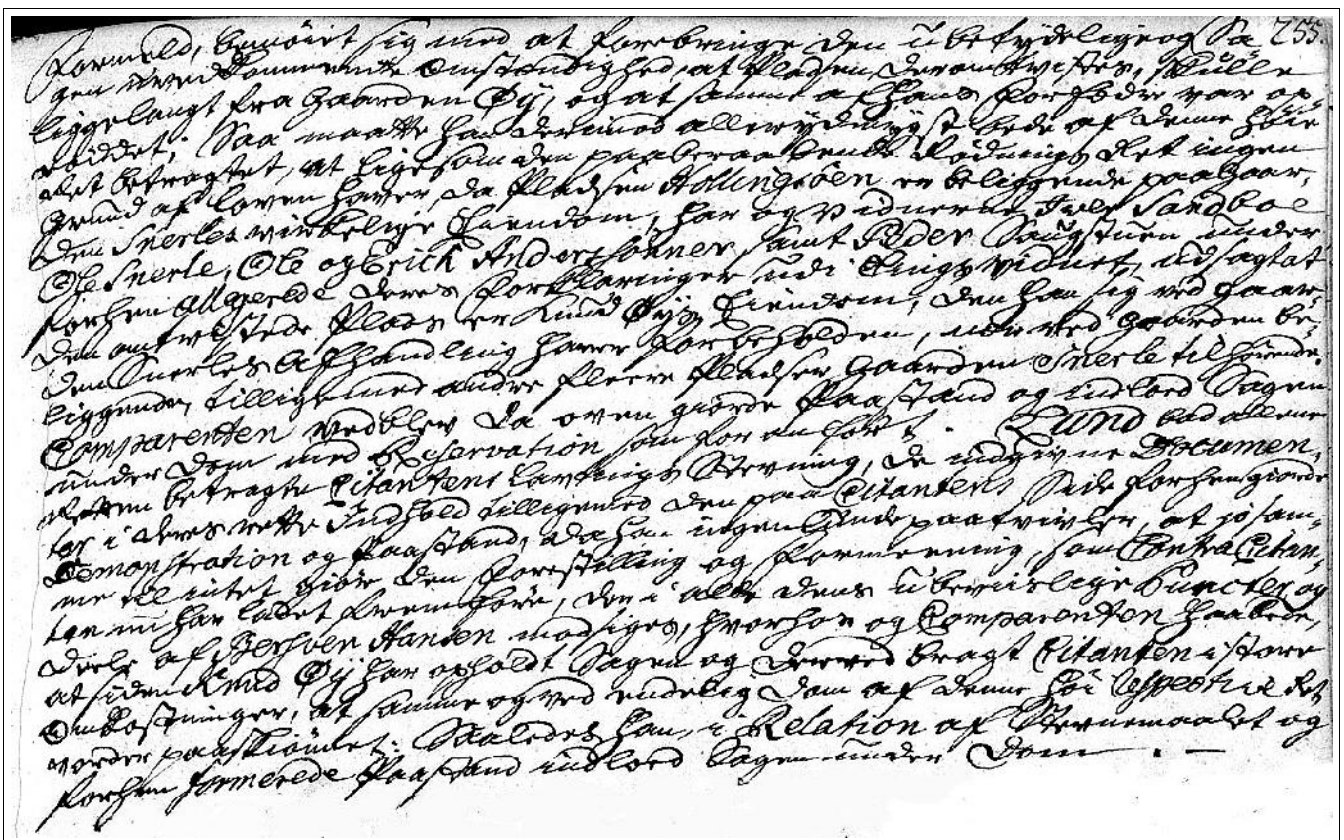 formeld, benøiet sig med at forebringe den ubetydelige og Sa- 255.
gen uvedkommende Omstændighed, at Pladsen, derom tvistes, skulle
ligge langt fra Gaarden Øÿ, og at samme af hans Forfædre var op-
røddet; Saa maatte han derimod allerydmygst bede af denne høie
Ret betragtet, at ligesom den paaberaabende Rødnings Ret ingen
Grund af Loven haver, da Pladsen Kollingsöen er beliggende paa Gaar-
den Snerles virkelige Eiendom, har og Vidnerne Iver Sandboe
Ole Snerle, Ole og Erich Anderssønner, samt Peder Saugstuen under
forhen allegerede deres Forklaringer udi Tings Vidnet, udsagt at
den omtvistede Plads er Knud Øÿs Eiendom, den han sig ved Gaar-
den Snerles Afhandling haver forbeholden, men ved Gaarden be-
liggende, tilligemed andre fleere Pladser Gaarden Snerle tilhørende.
Comparenten vedblev da oven giorde Paastand og indlod Sagen
under Dom med Reservation som for anført. Lund bad allene
Retten betragte Citantens Lavtings Stevning, de udgivne Documen-
ter i deres rette Indhold tilligemed den paa Citantens Side forhen giorde
Demonstration og Paastand, da han ingenlunde paatvivler, at jo sam-
me til intet giør den Forestilling og Formeening, som Contra Citan-
ten nu har ladet fremføre, der i alle dens ubeviislige Puncter og
Deele af Hansen modsiges, hvorhos og Comparenten haabede,
at siden Knud Øÿ har opholdt Sagen og derved bragt Citanten i store
Omkostninger, at samme og ved endelig Dom af denne høi respective Ret
vorder paaskiønnet. Saaledes han, i Relation af Stevnemaalet og
forhen formerede Paastand indlod Sagen under Dom. —